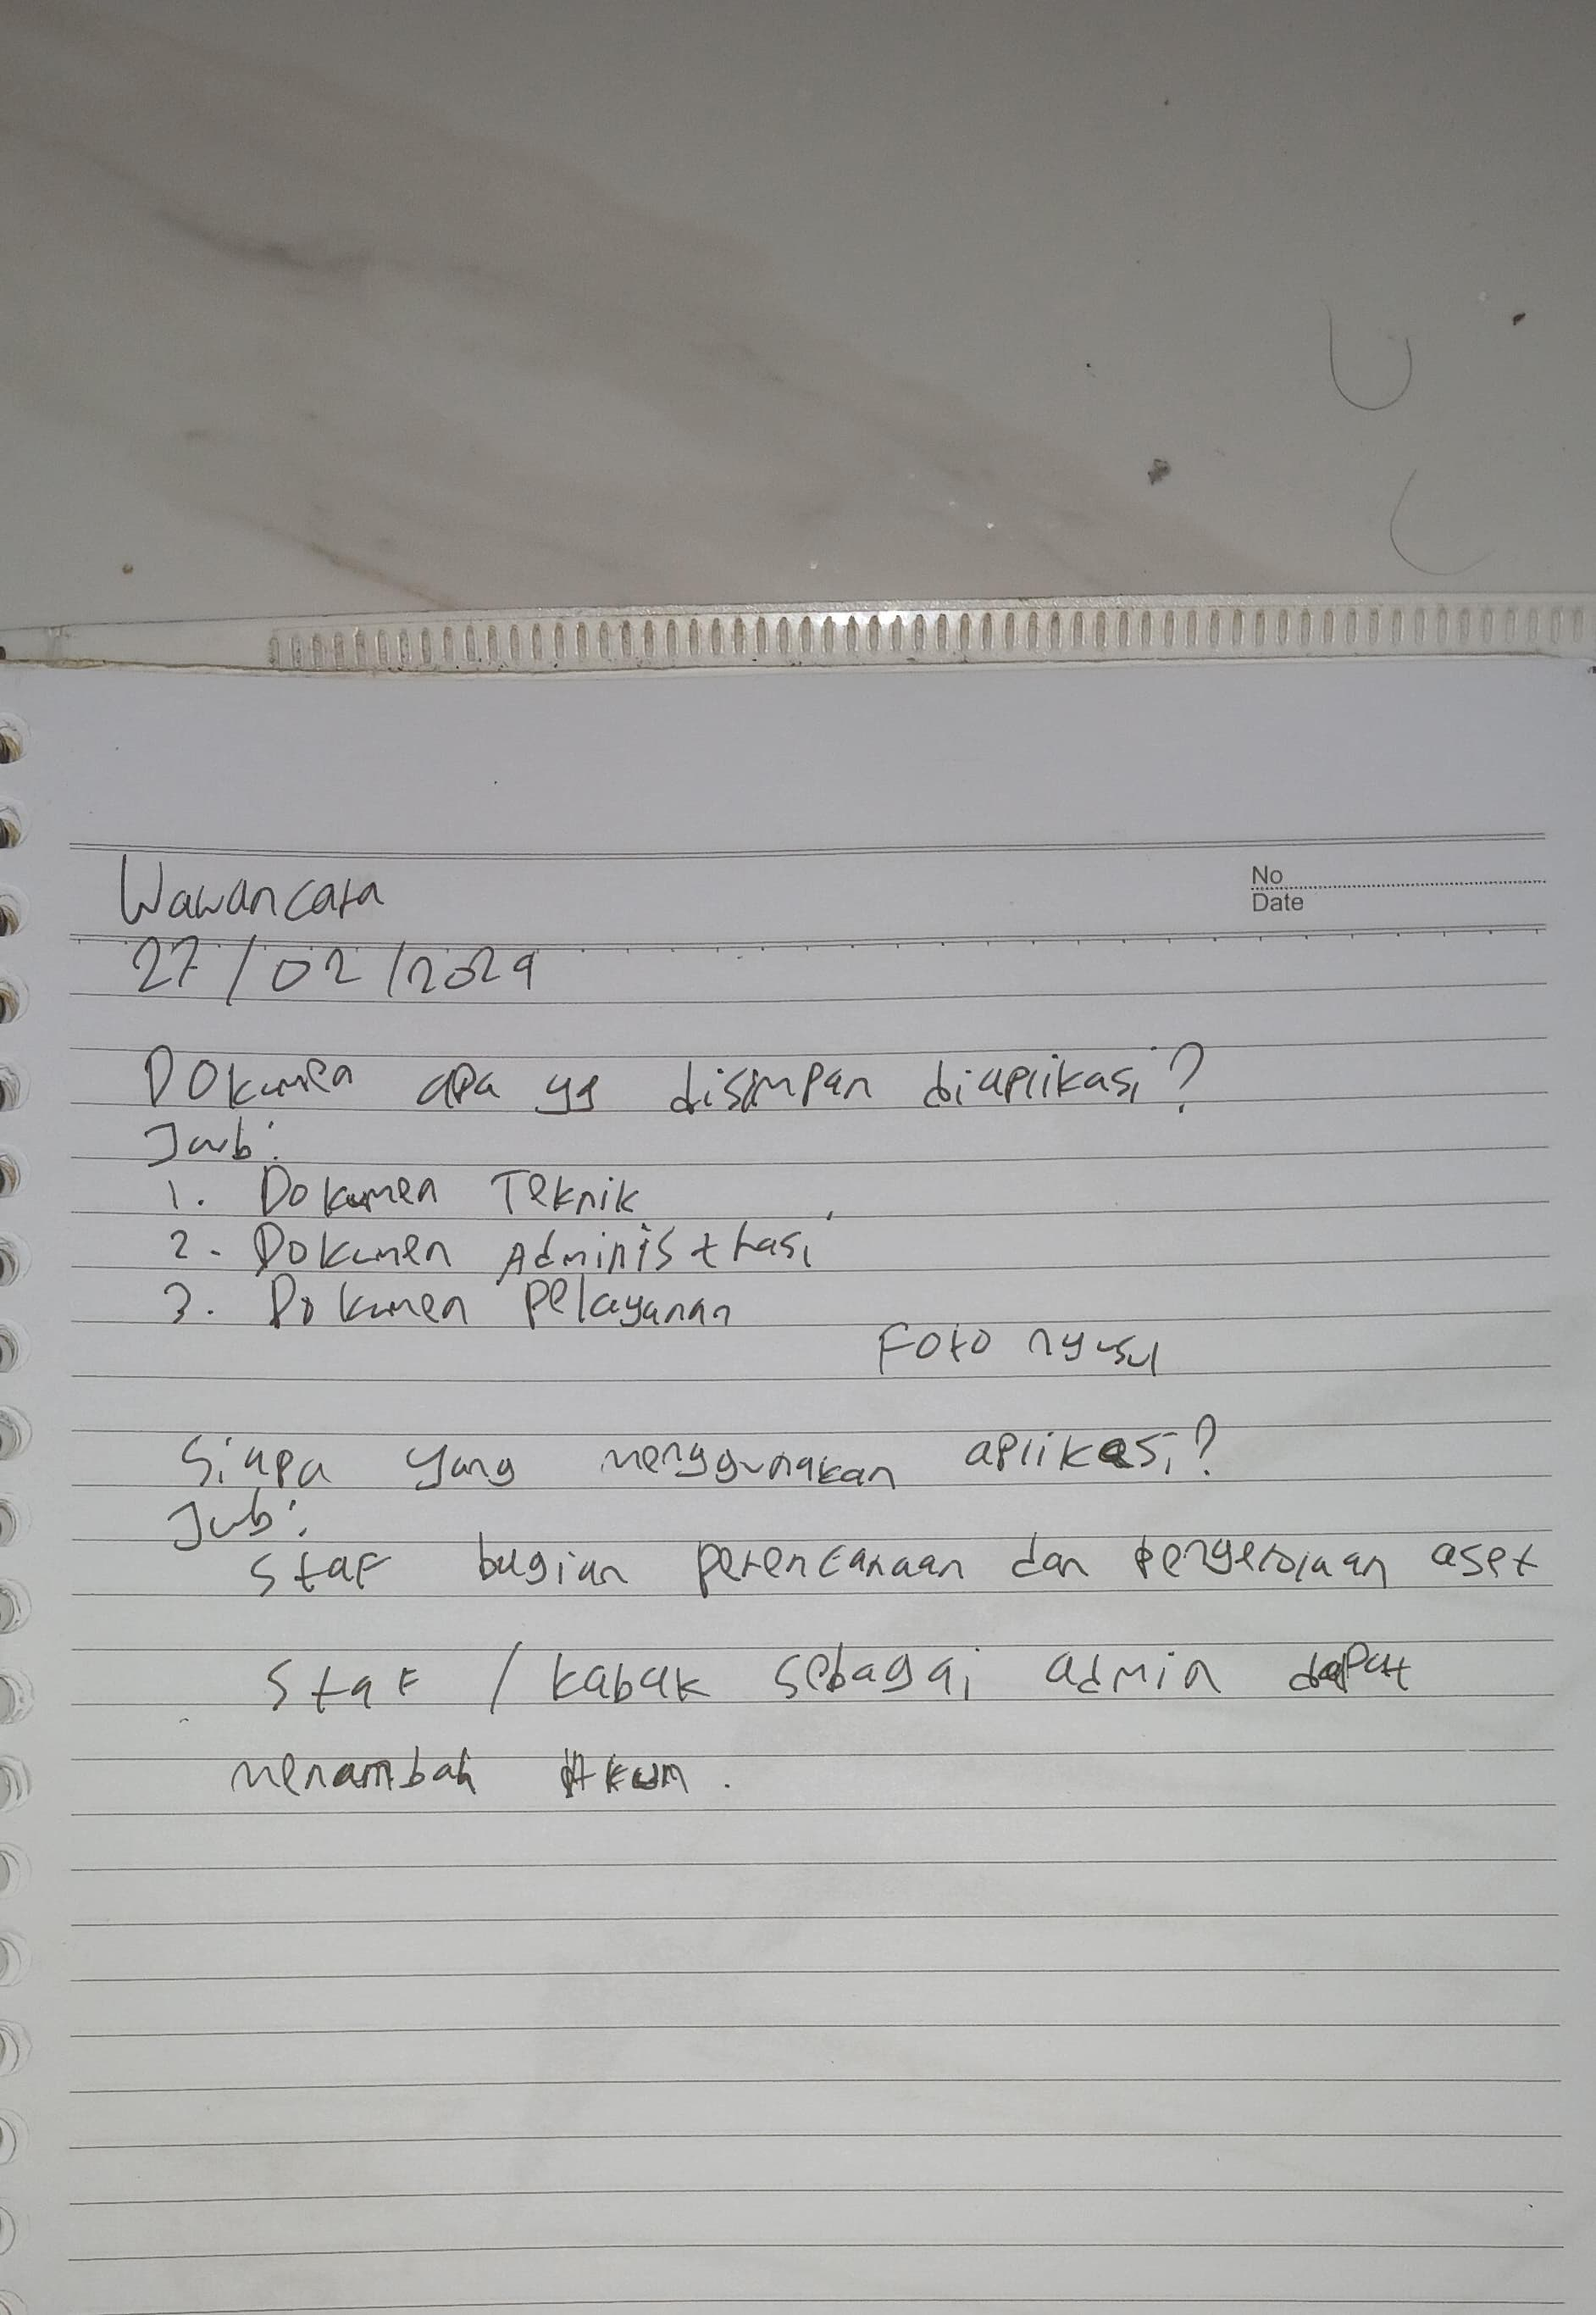 Wawancara
No
Date
27/02/2024
Dokumen apa yg disimpan diaplikasi?
Jwb:
1. Dokumen Teknik
2. Dokumen Administrasi
3. Dokumen Pelayanan
Foto nyusul
Siapa yang menggunakan aplikasi?
Jwb:
Staf bagian perencanaan dan aset
Staf / kabak sebagai admin dapat
menambah Akun.